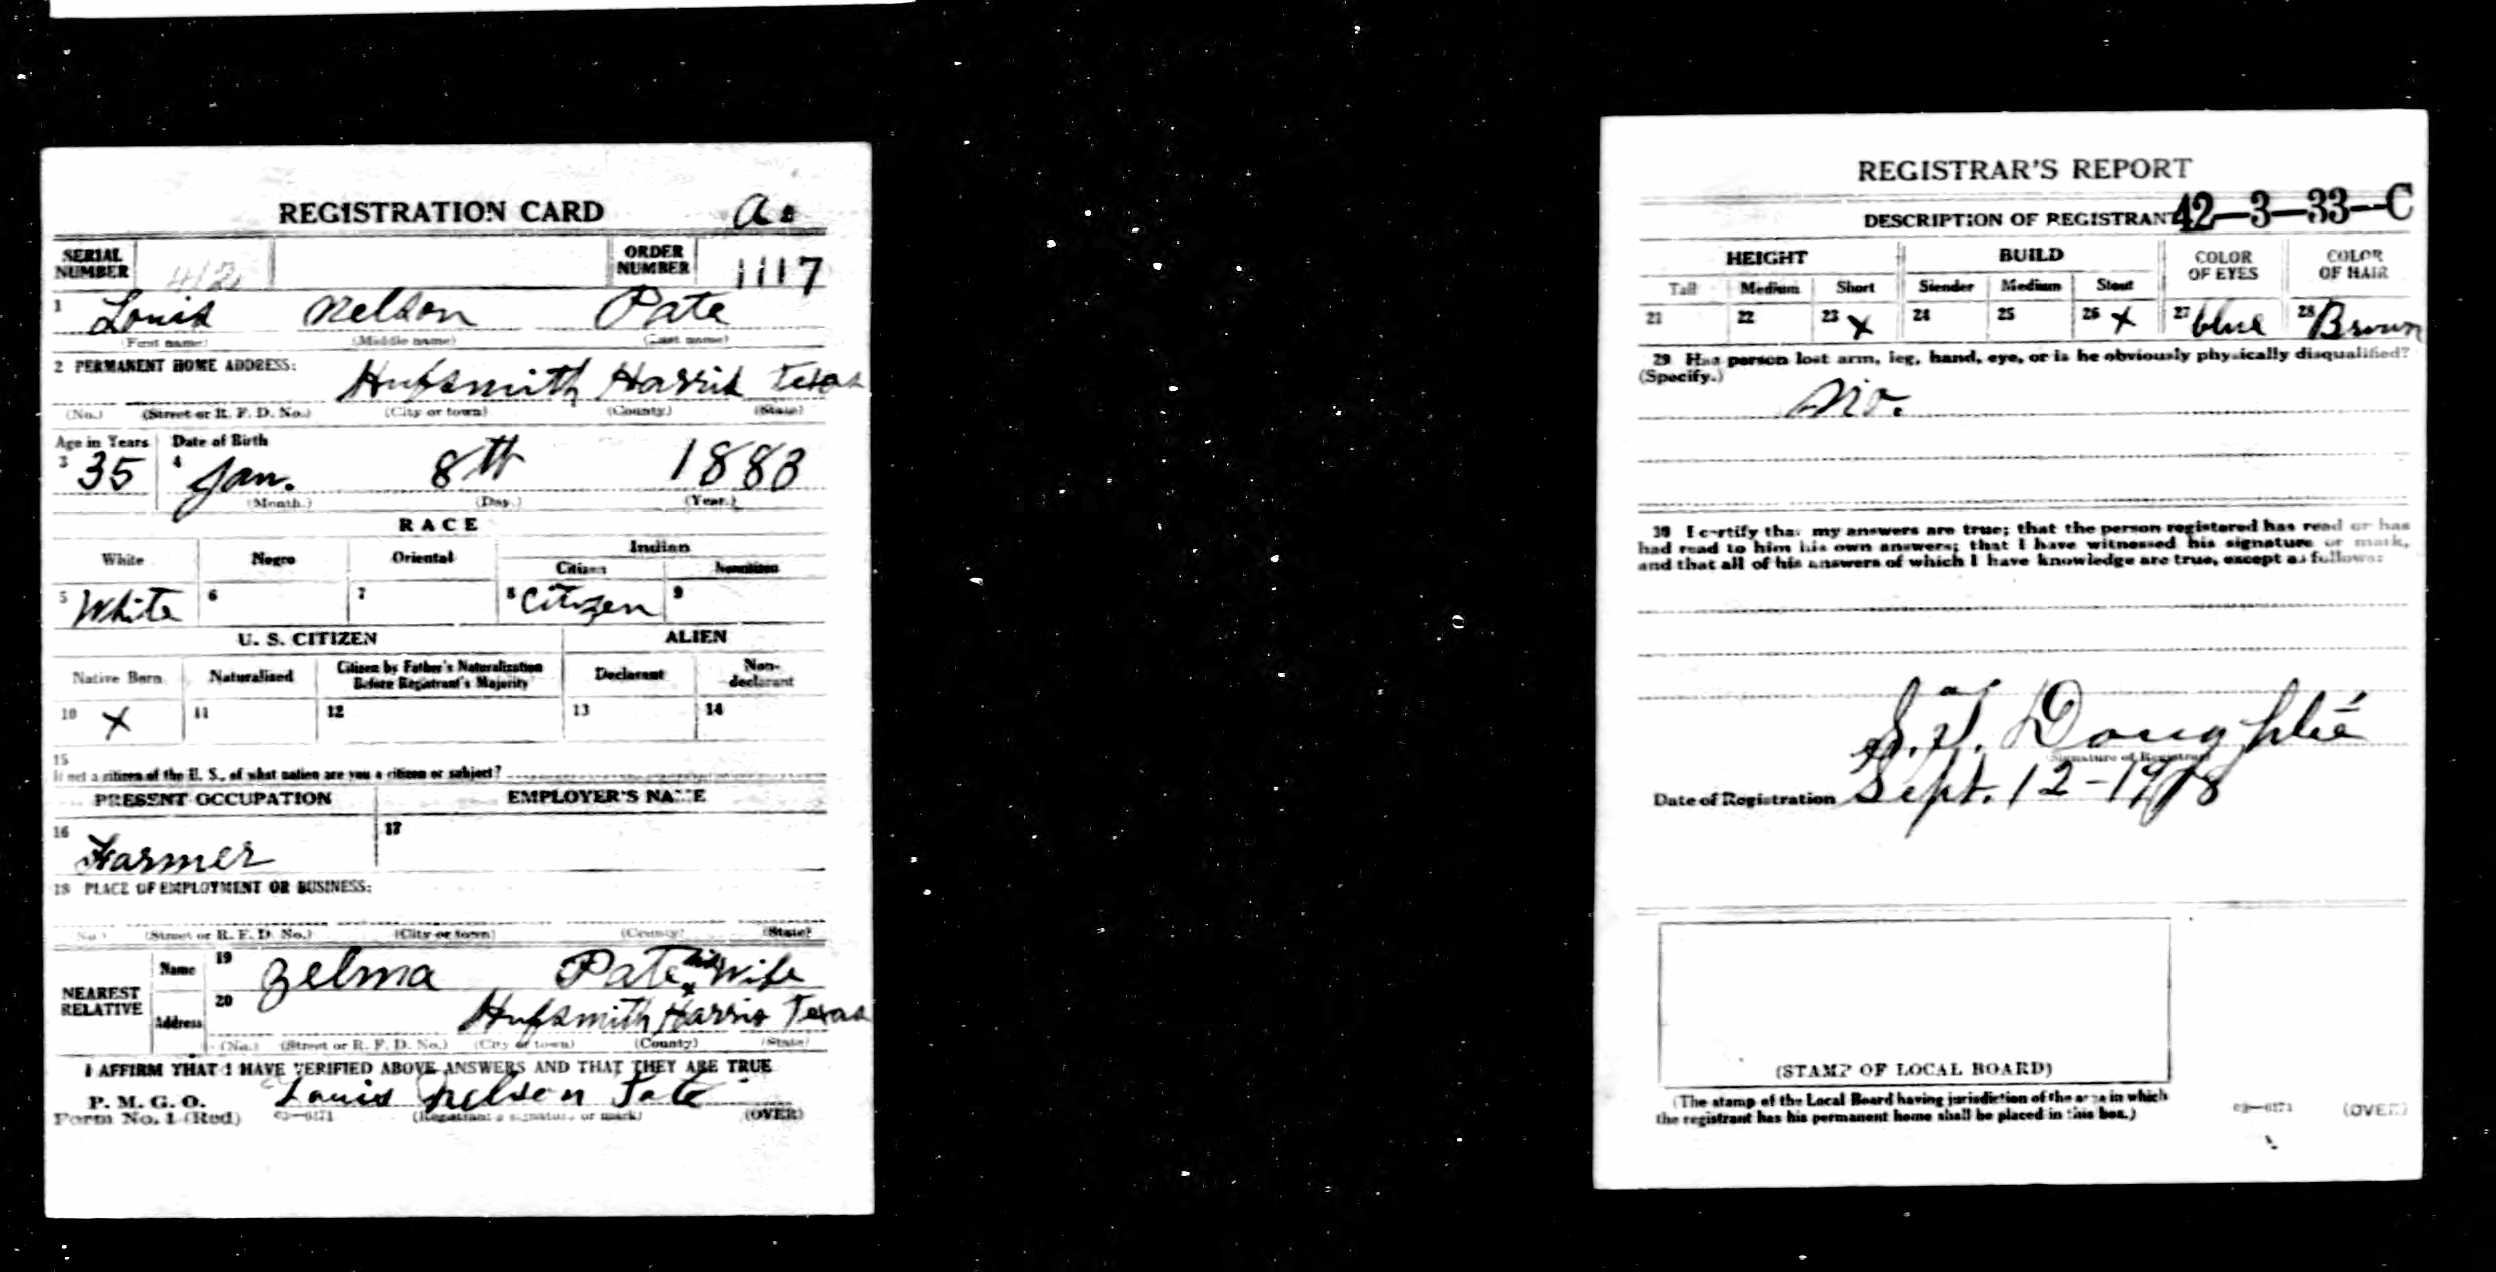 REGISTRATION CARD
SERIAL NUMBER 412 ORDER NUMBER 1117
1 Louis Nelson Pate
(First name) (Middle name) (Last name)
2 PERMANENT HOME ADDRESS:
Hufsmith Harris Texas
(No.) (Street or R. F. D. No.) (City or town) (County) (State)
Age in Years Date of Birth
3 35 4 Jan. 8th 1883
(Month.) (Day.) (Year.)
RACE
White Negro Oriental Indian
Citizen Noncitizen
5 White 6 7 8 Citizen 9
U. S. CITIZEN ALIEN
Native Born Naturalized Citizen by Father's Naturalization Before Registrant's Majority Declarant Non-declarant
10 X 11 12 13 14
15
If not a citizen of the U. S., of what nation are you a citizen or subject?
PRESENT OCCUPATION EMPLOYER'S NAME
16 Farmer 17
18 PLACE OF EMPLOYMENT OR BUSINESS:
(No.) (Street or R. F. D. No.) (City or town) (County) (State)
NEAREST RELATIVE Name 19 Zelma Pate Wife
Address 20 Hufsmith Harris Texas
(No.) (Street or R. F. D. No.) (City or town) (County) (State)
I AFFIRM THAT I HAVE VERIFIED ABOVE ANSWERS AND THAT THEY ARE TRUE
P. M. G. O. Louis Nelson Pate
Form No. 1 (Red) 03—6171 (Registrant's signature or mark) (OVER)
REGISTRAR'S REPORT
42—3—33—C
DESCRIPTION OF REGISTRANT
HEIGHT BUILD COLOR OF EYES COLOR OF HAIR
Tall Medium Short Slender Medium Stout
21 22 23 X 24 25 26 X 27 blue 28 Brown
29 Has person lost arm, leg, hand, eye, or is he obviously physically disqualified?
(Specify.)
No.
30 I certify that my answers are true; that the person registered has read or has
had read to him his own answers; that I have witnessed his signature or mark,
and that all of his answers of which I have knowledge are true, except as follows:
(Signature of Registrar)
Date of Registration Sept. 12-1918
(STAMP OF LOCAL BOARD)
(The stamp of the Local Board having jurisdiction of the area in which
the registrant has his permanent home shall be placed in this box.)
03—6171 (OVER)